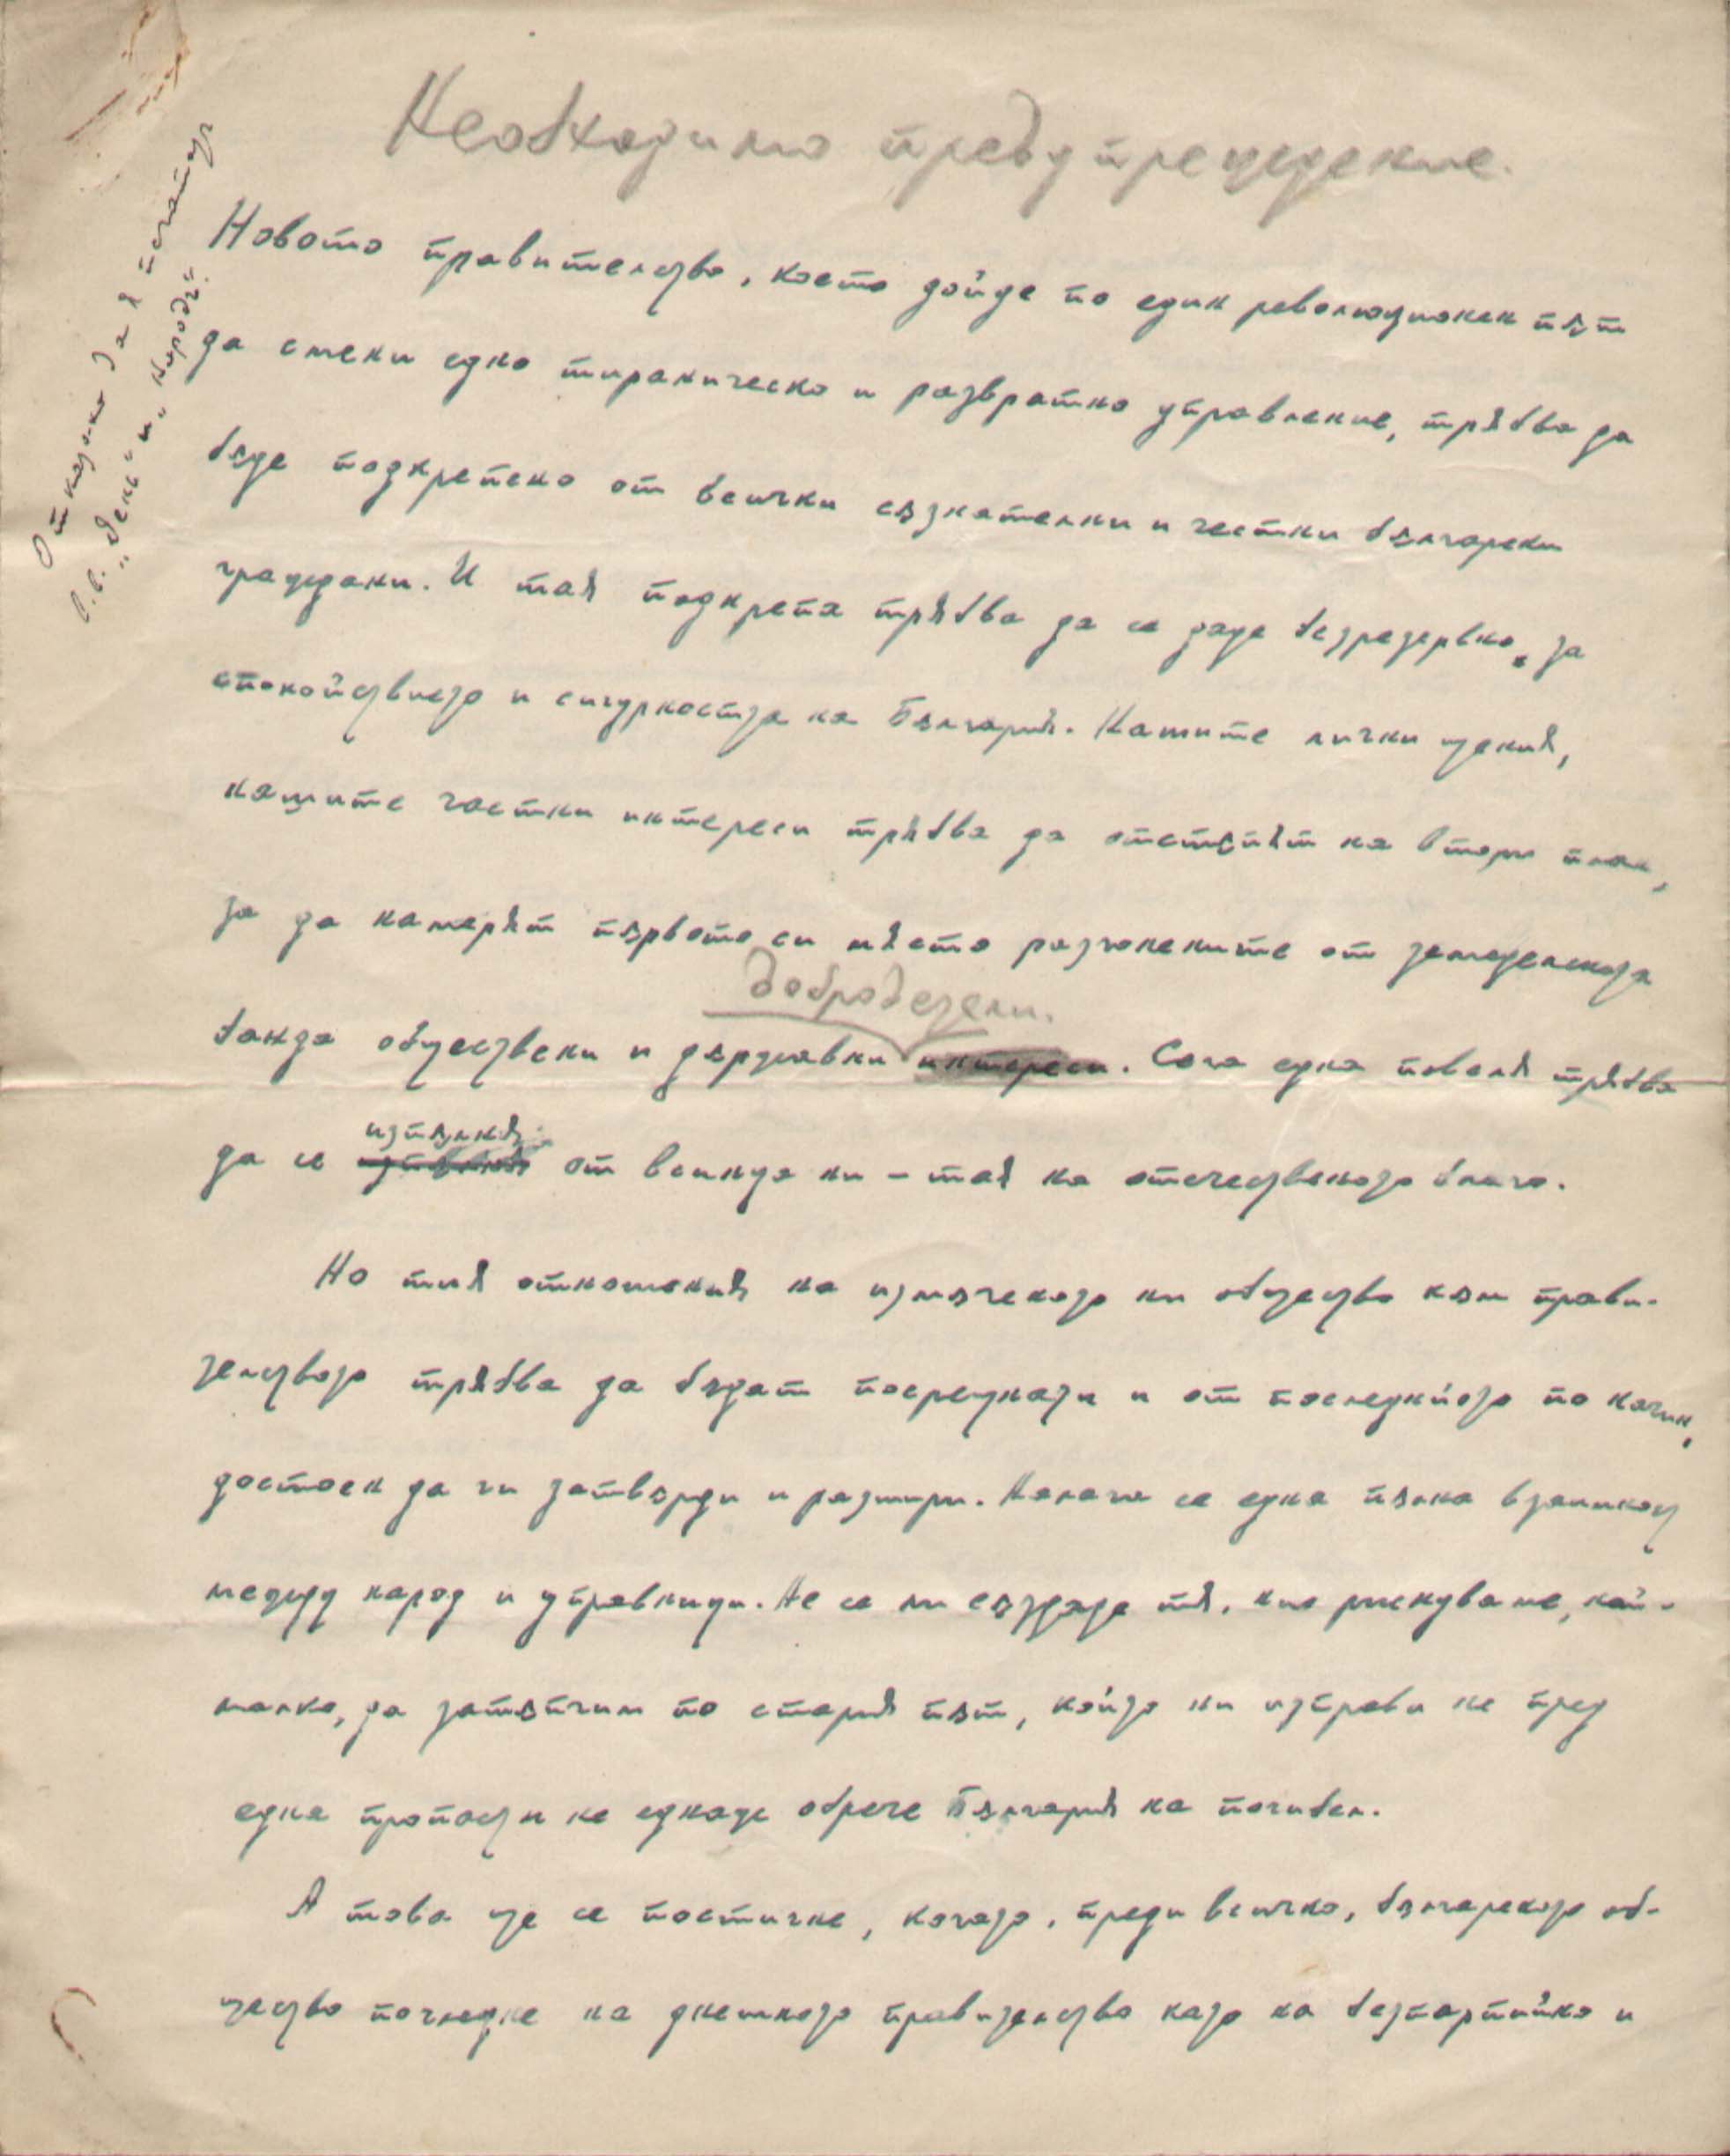 Необходимо предупреждение.
Отказаха да я печатат
в. в. „День" и „Народъ".
Новото правителство, което дойде по един революционен път
да смени едно тираническо и развратно управление, трябва да
бъде подкрепено от всички съзнателни и честни български
граждани. И тая подкрепа трябва да се даде безрезервно, за
спокойствието и сигурността на България. Нашите лични щения,
нашите частни интереси трябва да отстъпят на втори план,
за да намерят първото си място разгонените от земеделската
добродетели.
банда обществени и държавни интереси. Сега една повеля трябва
изпълня
да се от всинца ни – тая на отечественото благо.
Но тия отношения на измъченото ни общество към прави-
телството трябва да бъдат посрещнати и от последньото по начин,
достоен да ги затвърди и разшири. Налага се една пълна взаимност
между народ и управници. Не се ли създаде тя, ние рискуваме, най-
малко, да затътрим по стария път, който ни изправи не пред
една пропаст и не веднаж обрече България на погибел.
А това ще се постигне, когато, преди всичко, българското об-
щество погледне на днешното правителство като на безпартийно и